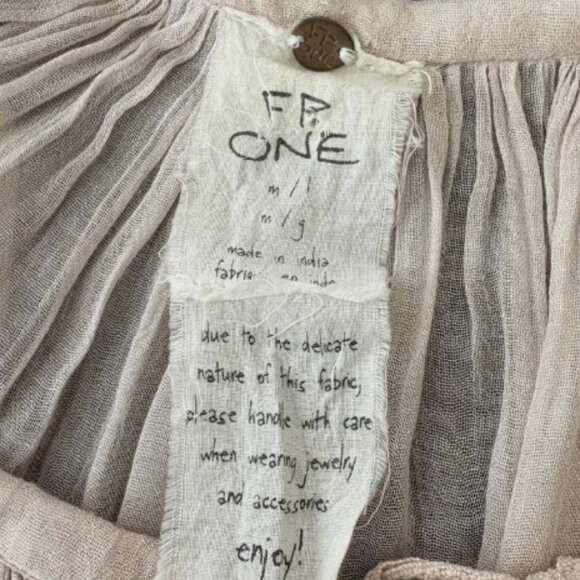 FP
ONE
FP
ONE
m / l
m / g
made in india
due to the delicate
nature of this fabric,
please handle with care
when wearing jewelry
and accessories
enjoy!